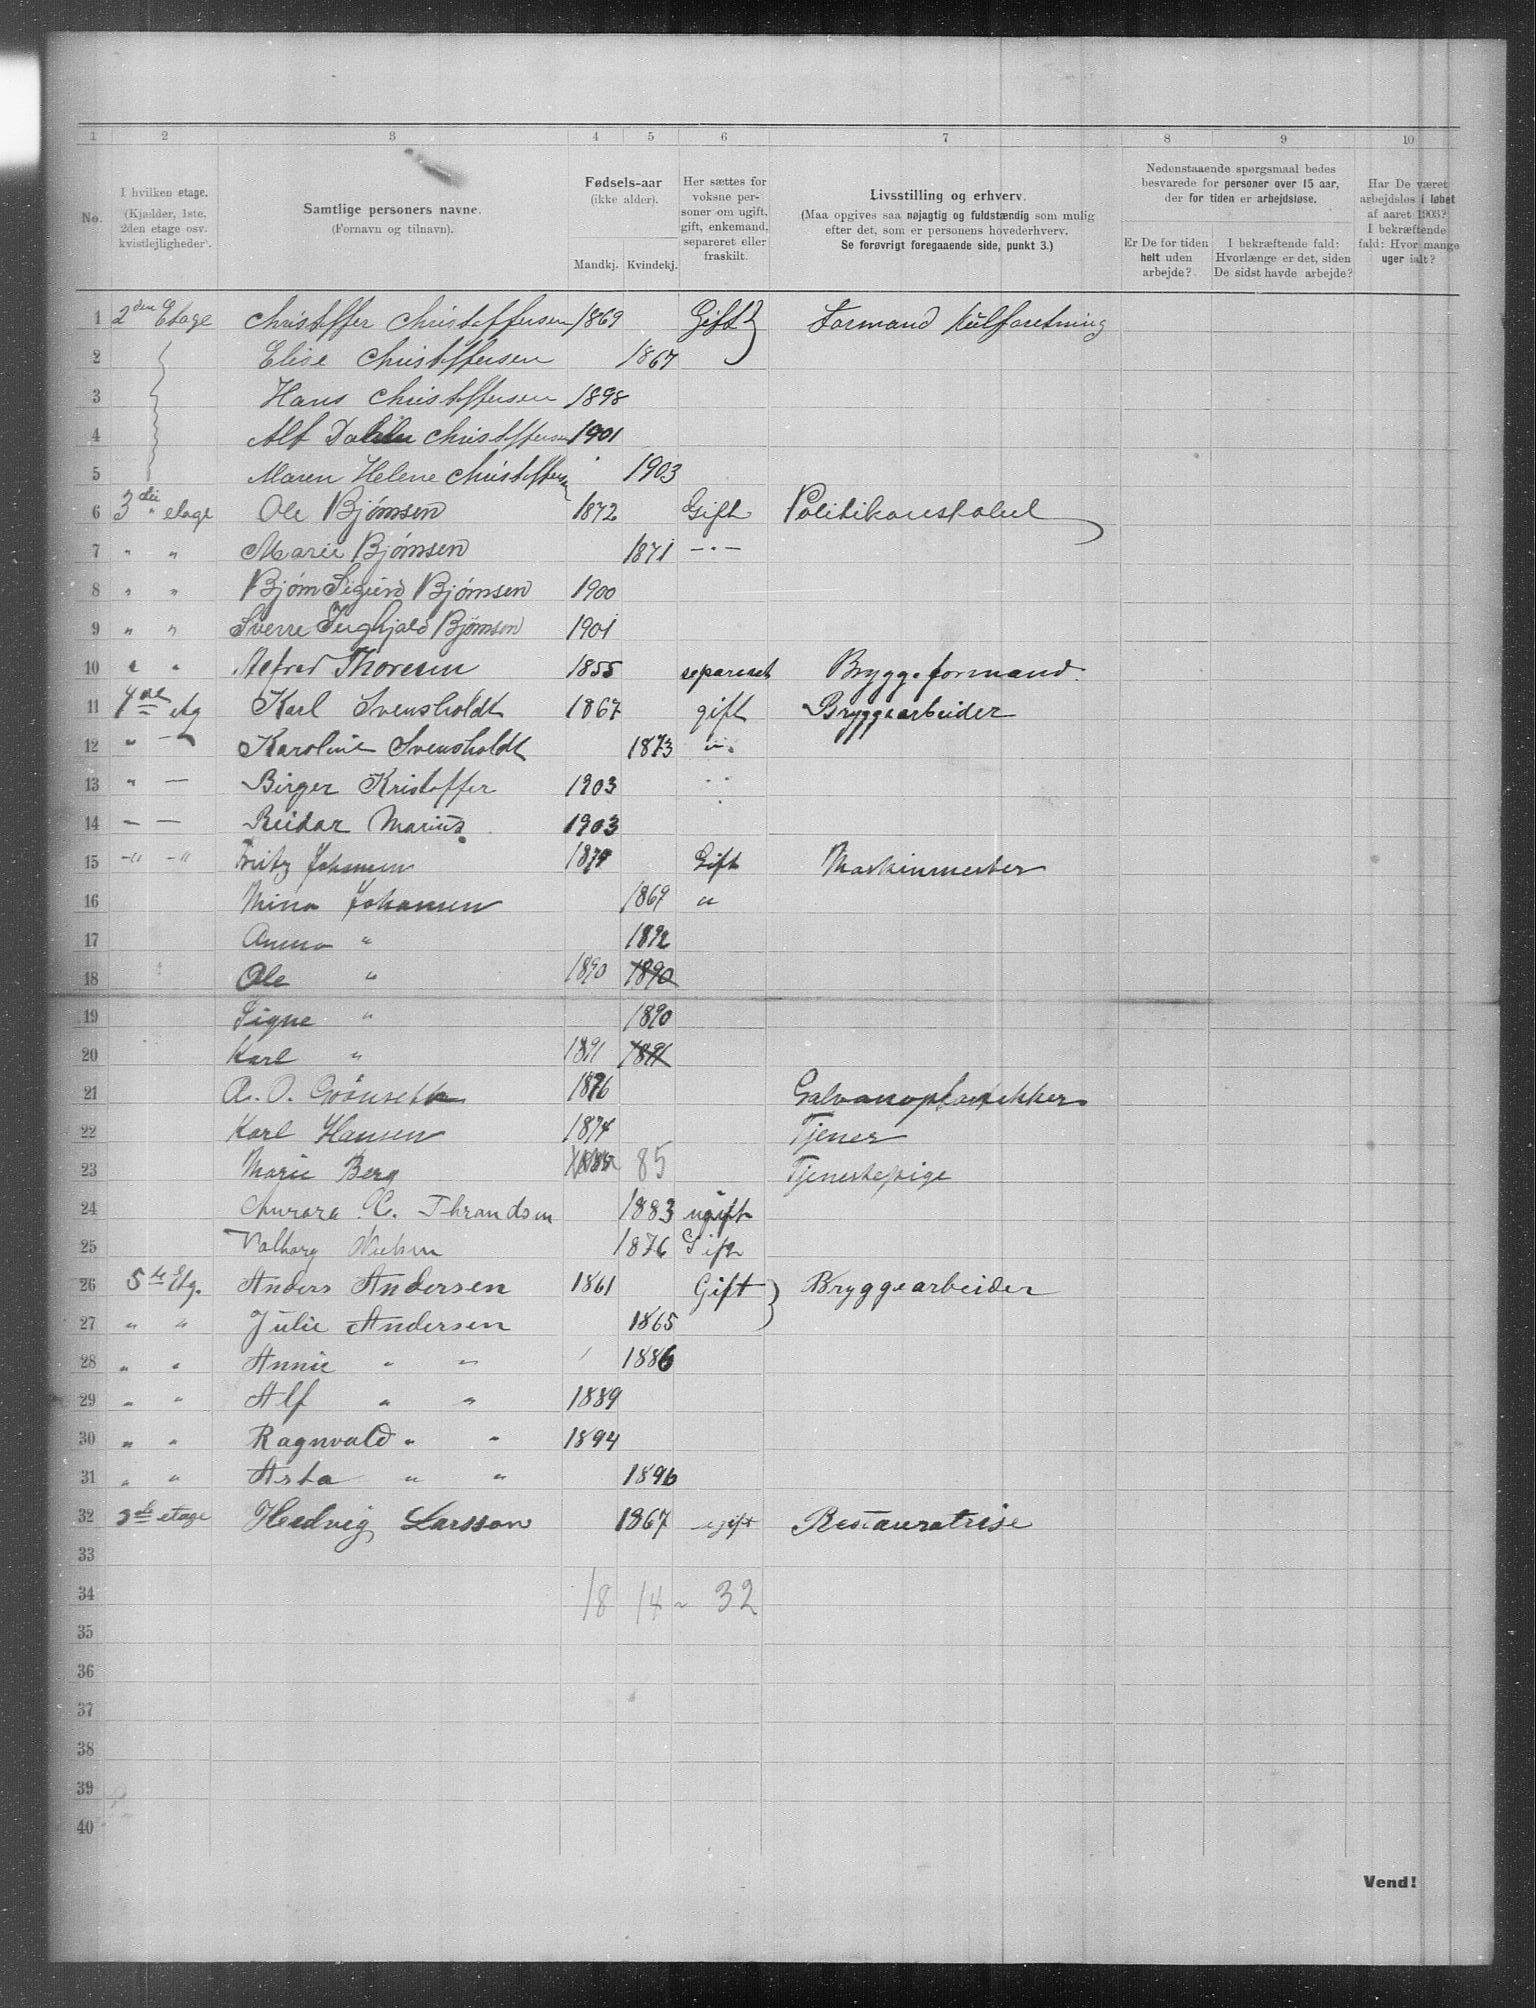 1 2 3 4 5 6 7 8 9 10
No.
I hvilken etage.
(Kjælder, 1ste,
2den etage osv.
kvistlejligheder).
Samtlige personers navne.
(Fornavn og tilnavn).
Fødsels-aar
(ikke alder).
Mandkj. Kvindekj.
Her sættes for
voksne per-
soner om ugift,
gift, enkemand,
separeret eller
fraskilt.
Livsstilling og erhverv.
(Maa opgives saa nøjagtig og fuldstændig som mulig
efter det, som er personens hovederhverv.
Se forøvrigt foregaaende side, punkt 3.)
Nedenstaaende spørgsmaal bedes
besvarede for personer over 15 aar,
der for tiden er arbejdsløse.
Er De for tiden
helt uden
arbejde?
I bekræftende fald:
Hvorlænge er det, siden
De sidst havde arbejde?
Har De været
arbejdsløs i løbet
af aaret 1903?
I bekræftende
fald: Hvor mange
uger ialt?
1 2den Etage Christoffer Christoffersen 1869 Gift } Formand Kulforetning
2 Elise Christoffersen 1867
3 Hans Christoffersen 1898
4 Alf Christoffersen 1901
5 Maren Helene Christoffersen 1903
6 3die etage Ole Bjørnsen 1872 Gift Politikonstabel
7 " " Marie Bjørnsen 1871 — " —
8 " " Bjørn Sigurd Bjørnsen 1900
9 " " Sverre Bjørnsen 1901
10 " " Alfred Thoresen 1855 separeret Bryggeformand.
11 4de etg Karl Svensholdt 1867 gift Bryggearbeider
12 " — Karoline Svensholdt 1873 "
13 " — Birger Kristoffer 1903 "
14 — — Reidar Marius. 1903
15 —" —" Fritz Johansen 1874 Gift Maskinmester
16 Mina Johansen 1869 "
17 Anna " 1892
18 Ole " 1890 1890
19 Signe " 1890
20 Karl " 1891 1891
21 A. O. Grønseth 1876
22 Karl Hansen 1874 Tjener
23 Marie Berg 85 Tjenestepige
24 Aurora C. Thrandsen 1883 ugift
25 Valborg Nielsen 1876 Gift
26 5te Etg. Anders Andersen 1861 Gift } Bryggearbeider
27 " " Julie Andersen 1865
28 " " Annie " " 1886
29 " " Alf " " 1889
30 " " Ragnvald " " 1894
31 " " Asta " " 1896
32 3de etage Hedvig Larsson 1867 ugift Restauratrise
33
34 18 14 ~ 32
35
36
37
38
39
40
Vend!